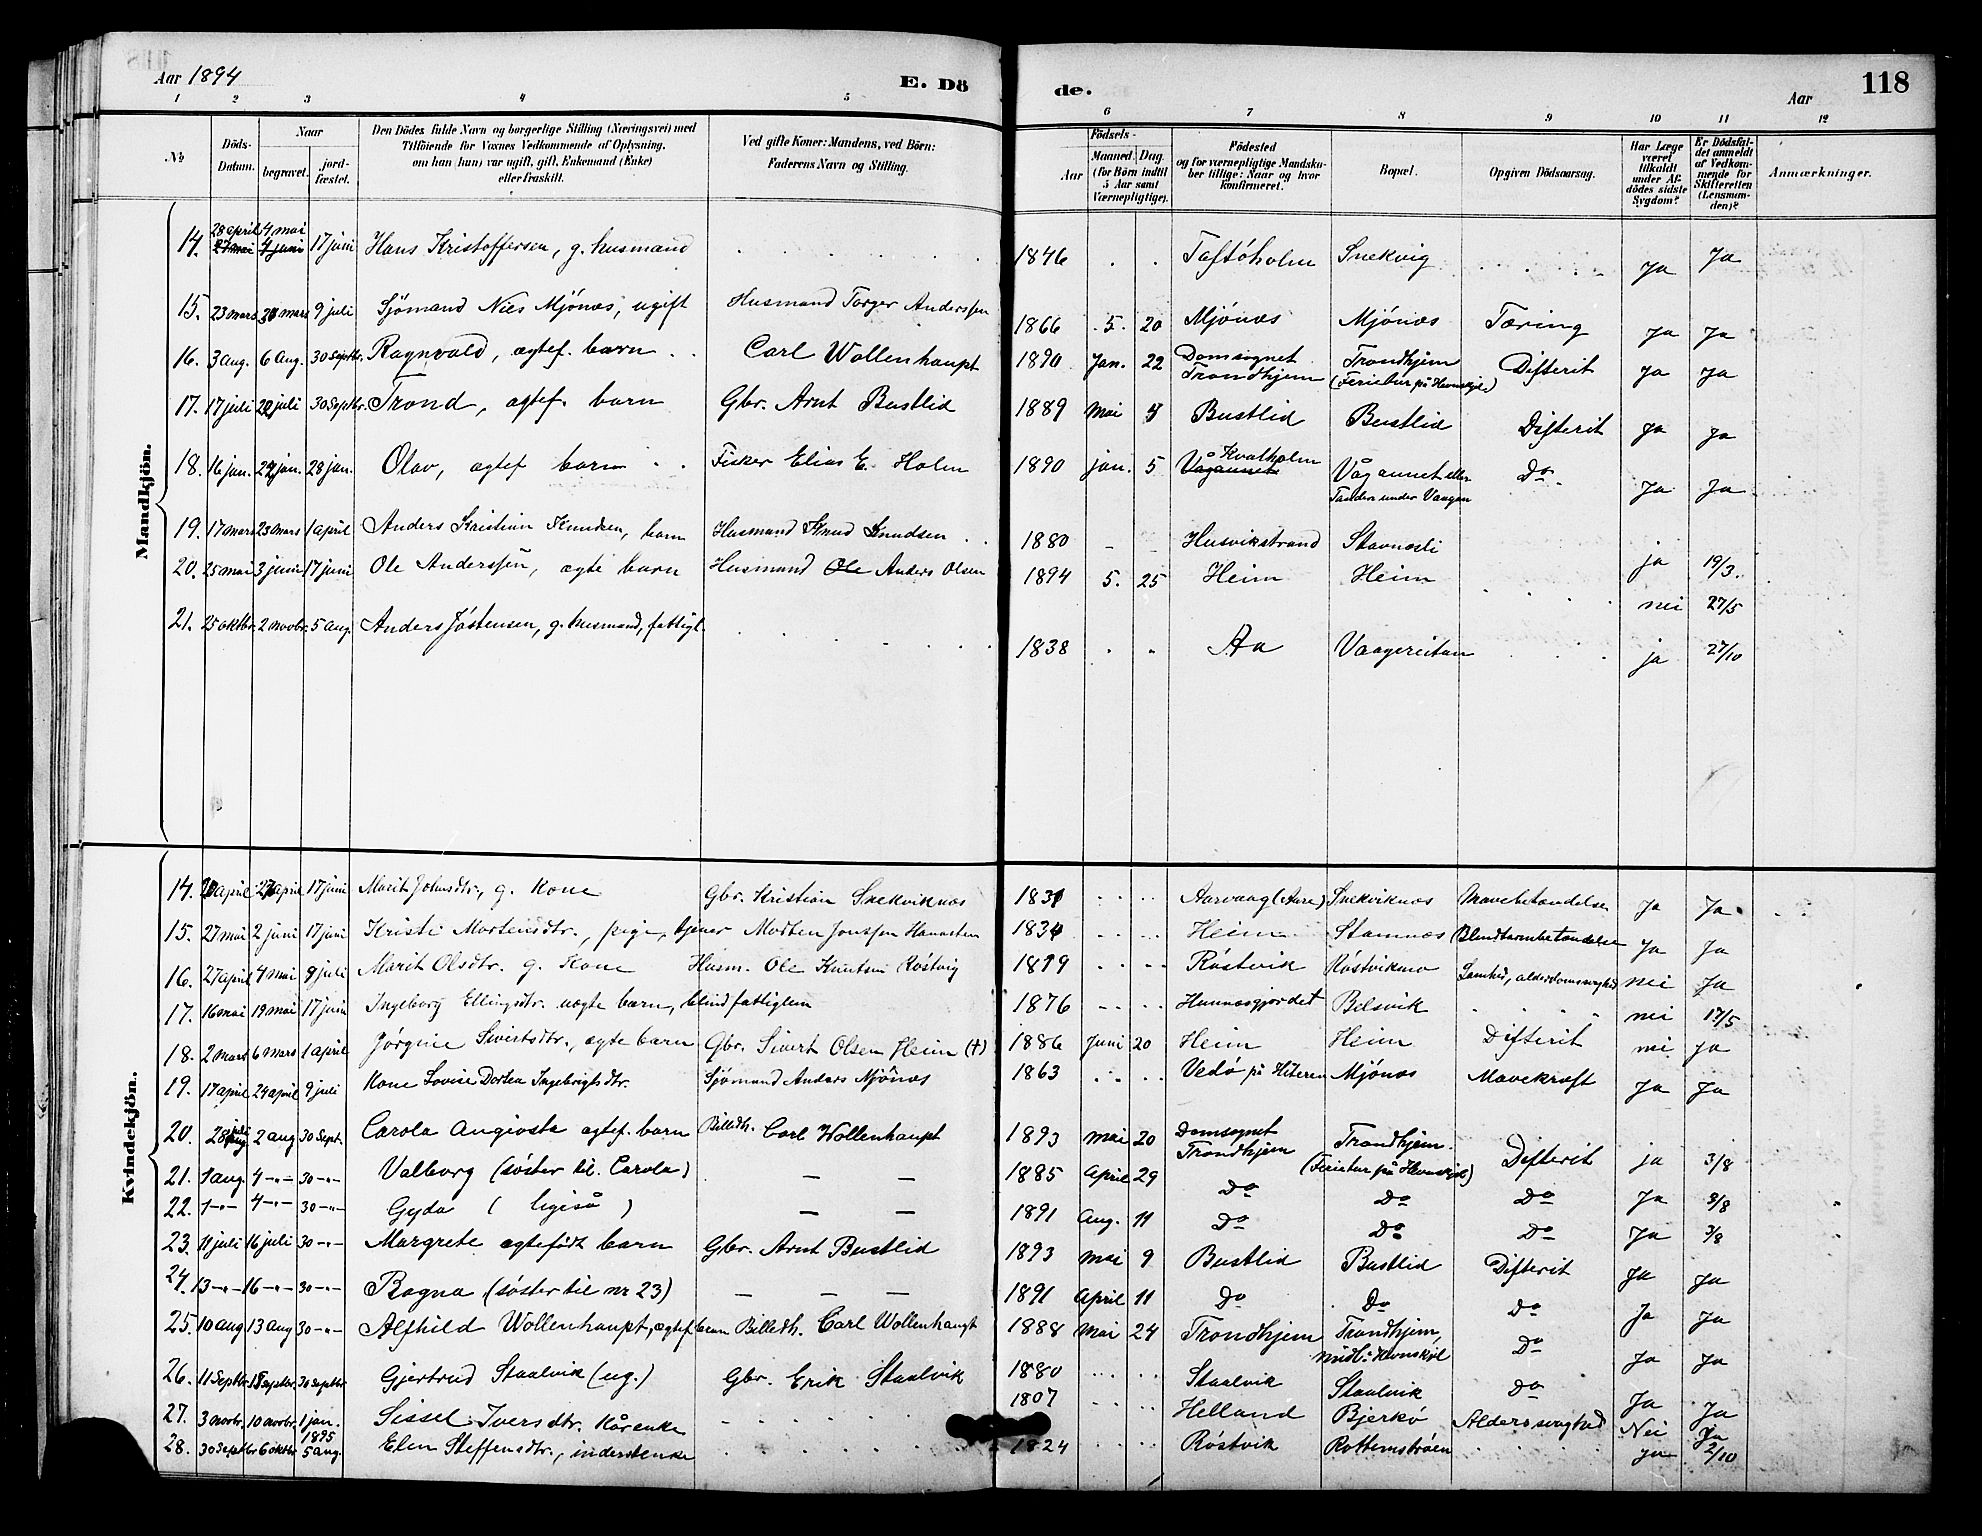 Aar 1894
E. Dö
de.
118
Aar
1 2 3 4 5 6 7 8 9 10 11 12
No
Döds-Datum.
Naar
begravet.
jordfæstet.
Den Dödes fulde Navn og borgerlige Stilling (Næringsvei) med Tilföiende for Voxnes Vedkommende af Oplysning, om han (hun) var ugift, gift, Enkemand (Enke) eller fraskilt.
Ved gifte Koner: Mandens, ved Börn: Faderens Navn og Stilling.
Födsels-
Aar
Maaned. Dag.
(for Börn indtil 5 Aar samt Værnepligtige).
Födested og for værnepligtige Mandskaber tillige: Naar og hvor konfirmeret.
Bopæl.
Opgiven Dödsaarsag.
Har Læge været tilkaldt under Afdödes sidste Sygdom?
Er Dödsfaldet anmeldt af Vedkommende for Skifteretten (Lensmanden)?
Anmærkninger.
Mandkjön.
14. 28 april 27 mai 4 mai 4 juni 17 juni Hans Kristoffersen, g. husmand 1846 Taftöholm Snekvig Ja Ja
15. 23 mars 30 mars 9 juli Sjömand Nils Mjönes, ugift Husmand Torger Anderssen 1866 5. 20 Mjönes Mjönes Tæring Ja Ja
16. 3 aug. 6 Aug. 30 Septbr. Ragnvald, ægtef. barn Carl Wollenhaupt 1890 Jan. 22 Domsognet Trondhjem Trondhjem (Ferietur på Hevnskjel) Difterit Ja Ja
17. 17 juli 20 juli 30 Septbr. Trond, ægtef. barn Gbr. Arnt Bustlid 1889 Mai 4 Bustlid Bustlid Difterit Ja Ja
18. 16 jan. 24 jan. 28 jan. Olav, ægtef. barn Fisker Elias E. Holm 1890 jan. 5 Vågannet Kvalholm Vågannet eller Tander under Vaagen Do Ja Ja
19. 17 mars 23 mars 1 april Anders Kristian Knudsen, barn Husmand Knud Knudsen 1880 Husvikstrand Stavnesli ja 19/3
20. 25 mai 3 juni 17 juni Ole Anderssen, ægte barn Husmand Ole Anders Olsen 1894 5. 25 Heim Heim nei 27/5
21. 25 oktbr. 2 novbr. 5 aug. Anders Jöstensen, g. husmand, fattigl. 1838 Aa Vaagereitan ja 27/10
Kvindekjön.
14. april april 17 juni Marit Johnsdtr., g. Kone Gbr. Kristian Snekviknes 1831 Aarvaag (Aure) Snekviknes Mavebetændelse Ja Ja
15. 27 mai 2 juni 17 juni Kristi Mortensdtr., pige, tjener Morten Jonssen 1834 Heim Stamnes Blindtarmbetændelse Ja Ja
16. 27 april 4 mai 9 juli Marit Olsdtr. g. Kone Husm. Ole Knutsen Röstvig 1819 Röstvik Röstvikmo alderdomssvaghed nei Ja
17. 16 mai 19 mai 17 juni Ingeborg Ellingsdtr. uægte barn, blind fattiglem 1876 Hannesgjerdet Belsvik nei 17/5
18. 2 mars 6 mars 1 april Jørgine Sivertsdtr., ægte barn Gbr. Sivert Olsen Heim (+) 1886 Juni 20 Heim Heim Difterit nei Ja
19. 17 april 24 april 9 juli Kone Lovise Dortea Ingebrigtsdtr. Sjømand Anders Mjönes 1863 Vedö på Hiteren Mjönes Mavekræft Ja Ja
20. 28 juli aug 2 aug 30 Sept. Carola Angiosta ægtef. barn Billedh. Carl Wollenhaupt 1893 Mai 20 Domsognet Trondhjem Trondhjem (Ferietur på Hevnskjel) Difterit ja 3/8
21. 1 aug. 4 -"- 30 -"- Valborg (söster til Carola) — — 1885 April 29 Do Do Do Ja 3/8
22. 1 -"- 4 -"- 30 -"- Gyda (ligeså) — — 1891 Aug. 11 Do Do Do Ja 3/8
23. 11 juli 16 juli 30 -"- Margrete ægtefödt barn Gbr. Arnt Bustlid 1893 Mai 9 Bustlid Bustlid Difterit Ja Ja
24. 13 -"- 16 -"- 30 -"- Ragna (söster til nr 23) — — — 1891 April 11 Do Do Do Ja Ja
25. 10 aug 13 aug 30 -"- Alfhild Wollenhaupt, ægtef. barn Billedh. Carl Wollenhaupt 1888 Mai 24 Trondhjem Trondhjem, midl: Hevnskjel Do Ja Ja
26. 11 Septbr. 18 Septbr. 30 Septbr Gjertrud Staalvik (ug.) Gbr. Erik Staalvik 1880 Staalvik Staalvik Do Ja Ja
27. 3 novbr. 10 novbr. 1 jan. 1895 Sissel Iversdtr. Kårenke 1807 Helland Bjerkö Alderssvaghed Nei Ja
28. 30 Septbr 6 oktbr. 5 aug. Elen Steffensdtr., inderstenke 1824 Röstvik Rottemströen ja 2/10